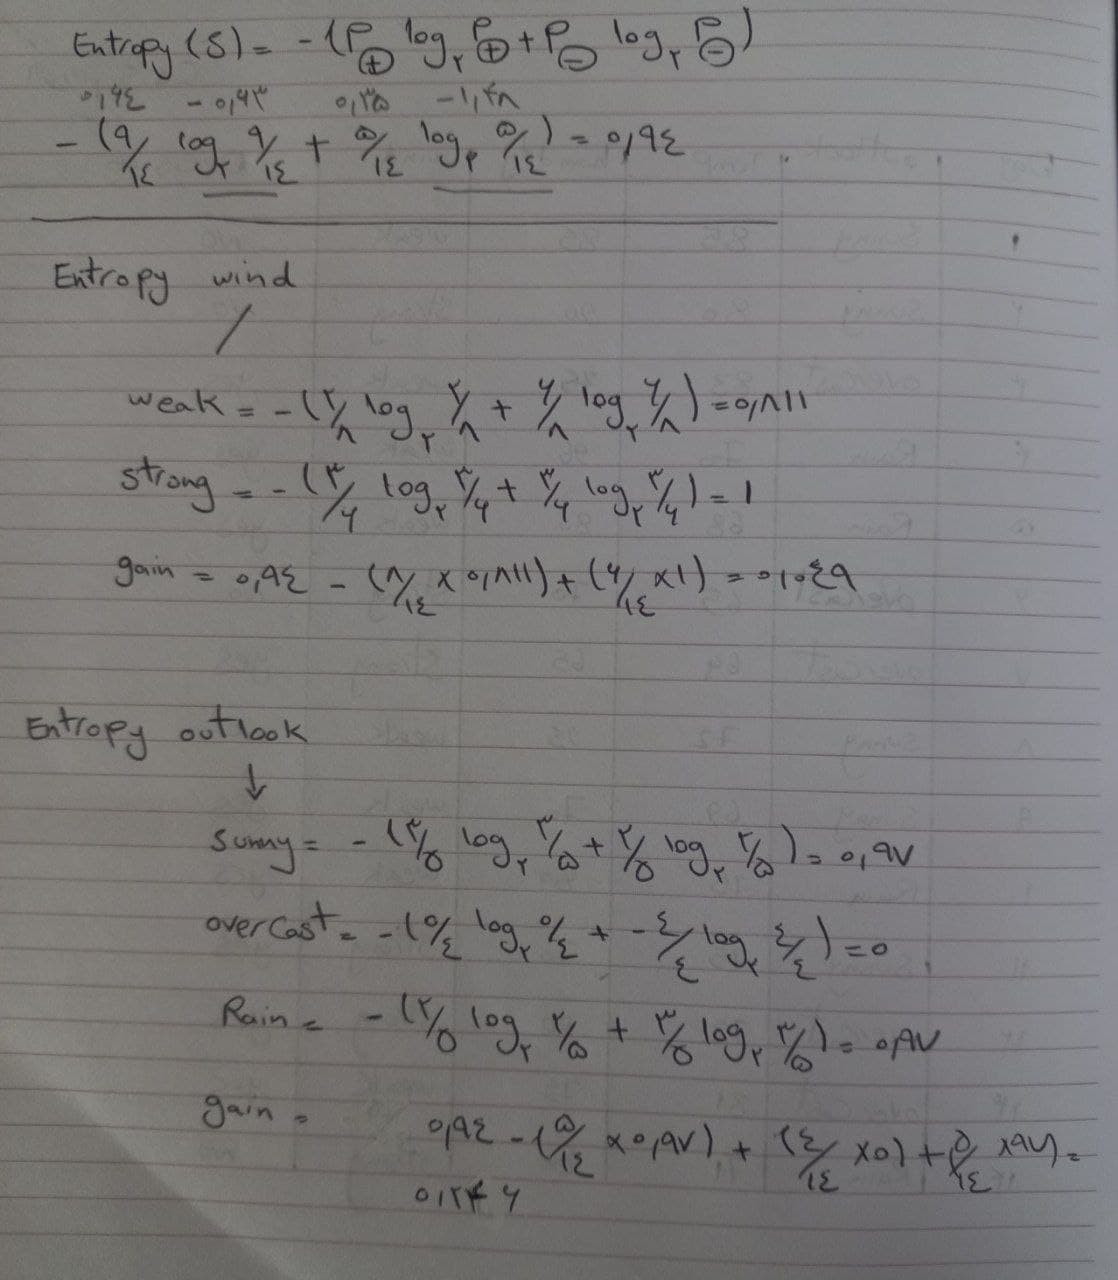 Entropy (S) = - (P⊕ log₂ P⊕ + P⊖ log₂ P⊖)
۰,۶٤ - ۰,۶۳ ۰,۳۵ -۱,۴۸
- (۹/۱٤ log₂ ۹/۱٤ + ۵/۱٤ log₂ ۵/۱٤) = ۰,۹٤
Entropy wind
weak = - (۲/۸ log₂ ۲/۸ + ۶/۸ log₂ ۶/۸) = ۰,۸۱۱
strong = - (۳/۶ log₂ ۳/۶ + ۳/۶ log₂ ۳/۶) = ۱
gain = ۰,۹٤ - (۸/۱٤ × ۰,۸۱۱) + (۶/۱٤ × ۱) = ۰,۰٤۹
Entropy outlook
↓
Sunny = - (۳/۵ log₂ ۳/۵ + ۲/۵ log₂ ۲/۵) = ۰,۹۷
overcast = - (۰/٤ log₂ ۰/٤ + - ٤/٤ log₂ ٤/٤) = ۰
Rain = - (۲/۵ log₂ ۲/۵ + ۳/۵ log₂ ۳/۵) = ۰,۹۷
gain = ۰,۹٤ - (۵/۱٤ × ۰,۹۷) + (٤/۱٤ × ۰) + (۵/۱٤ × ۹۷) =
۰,۲۴۶